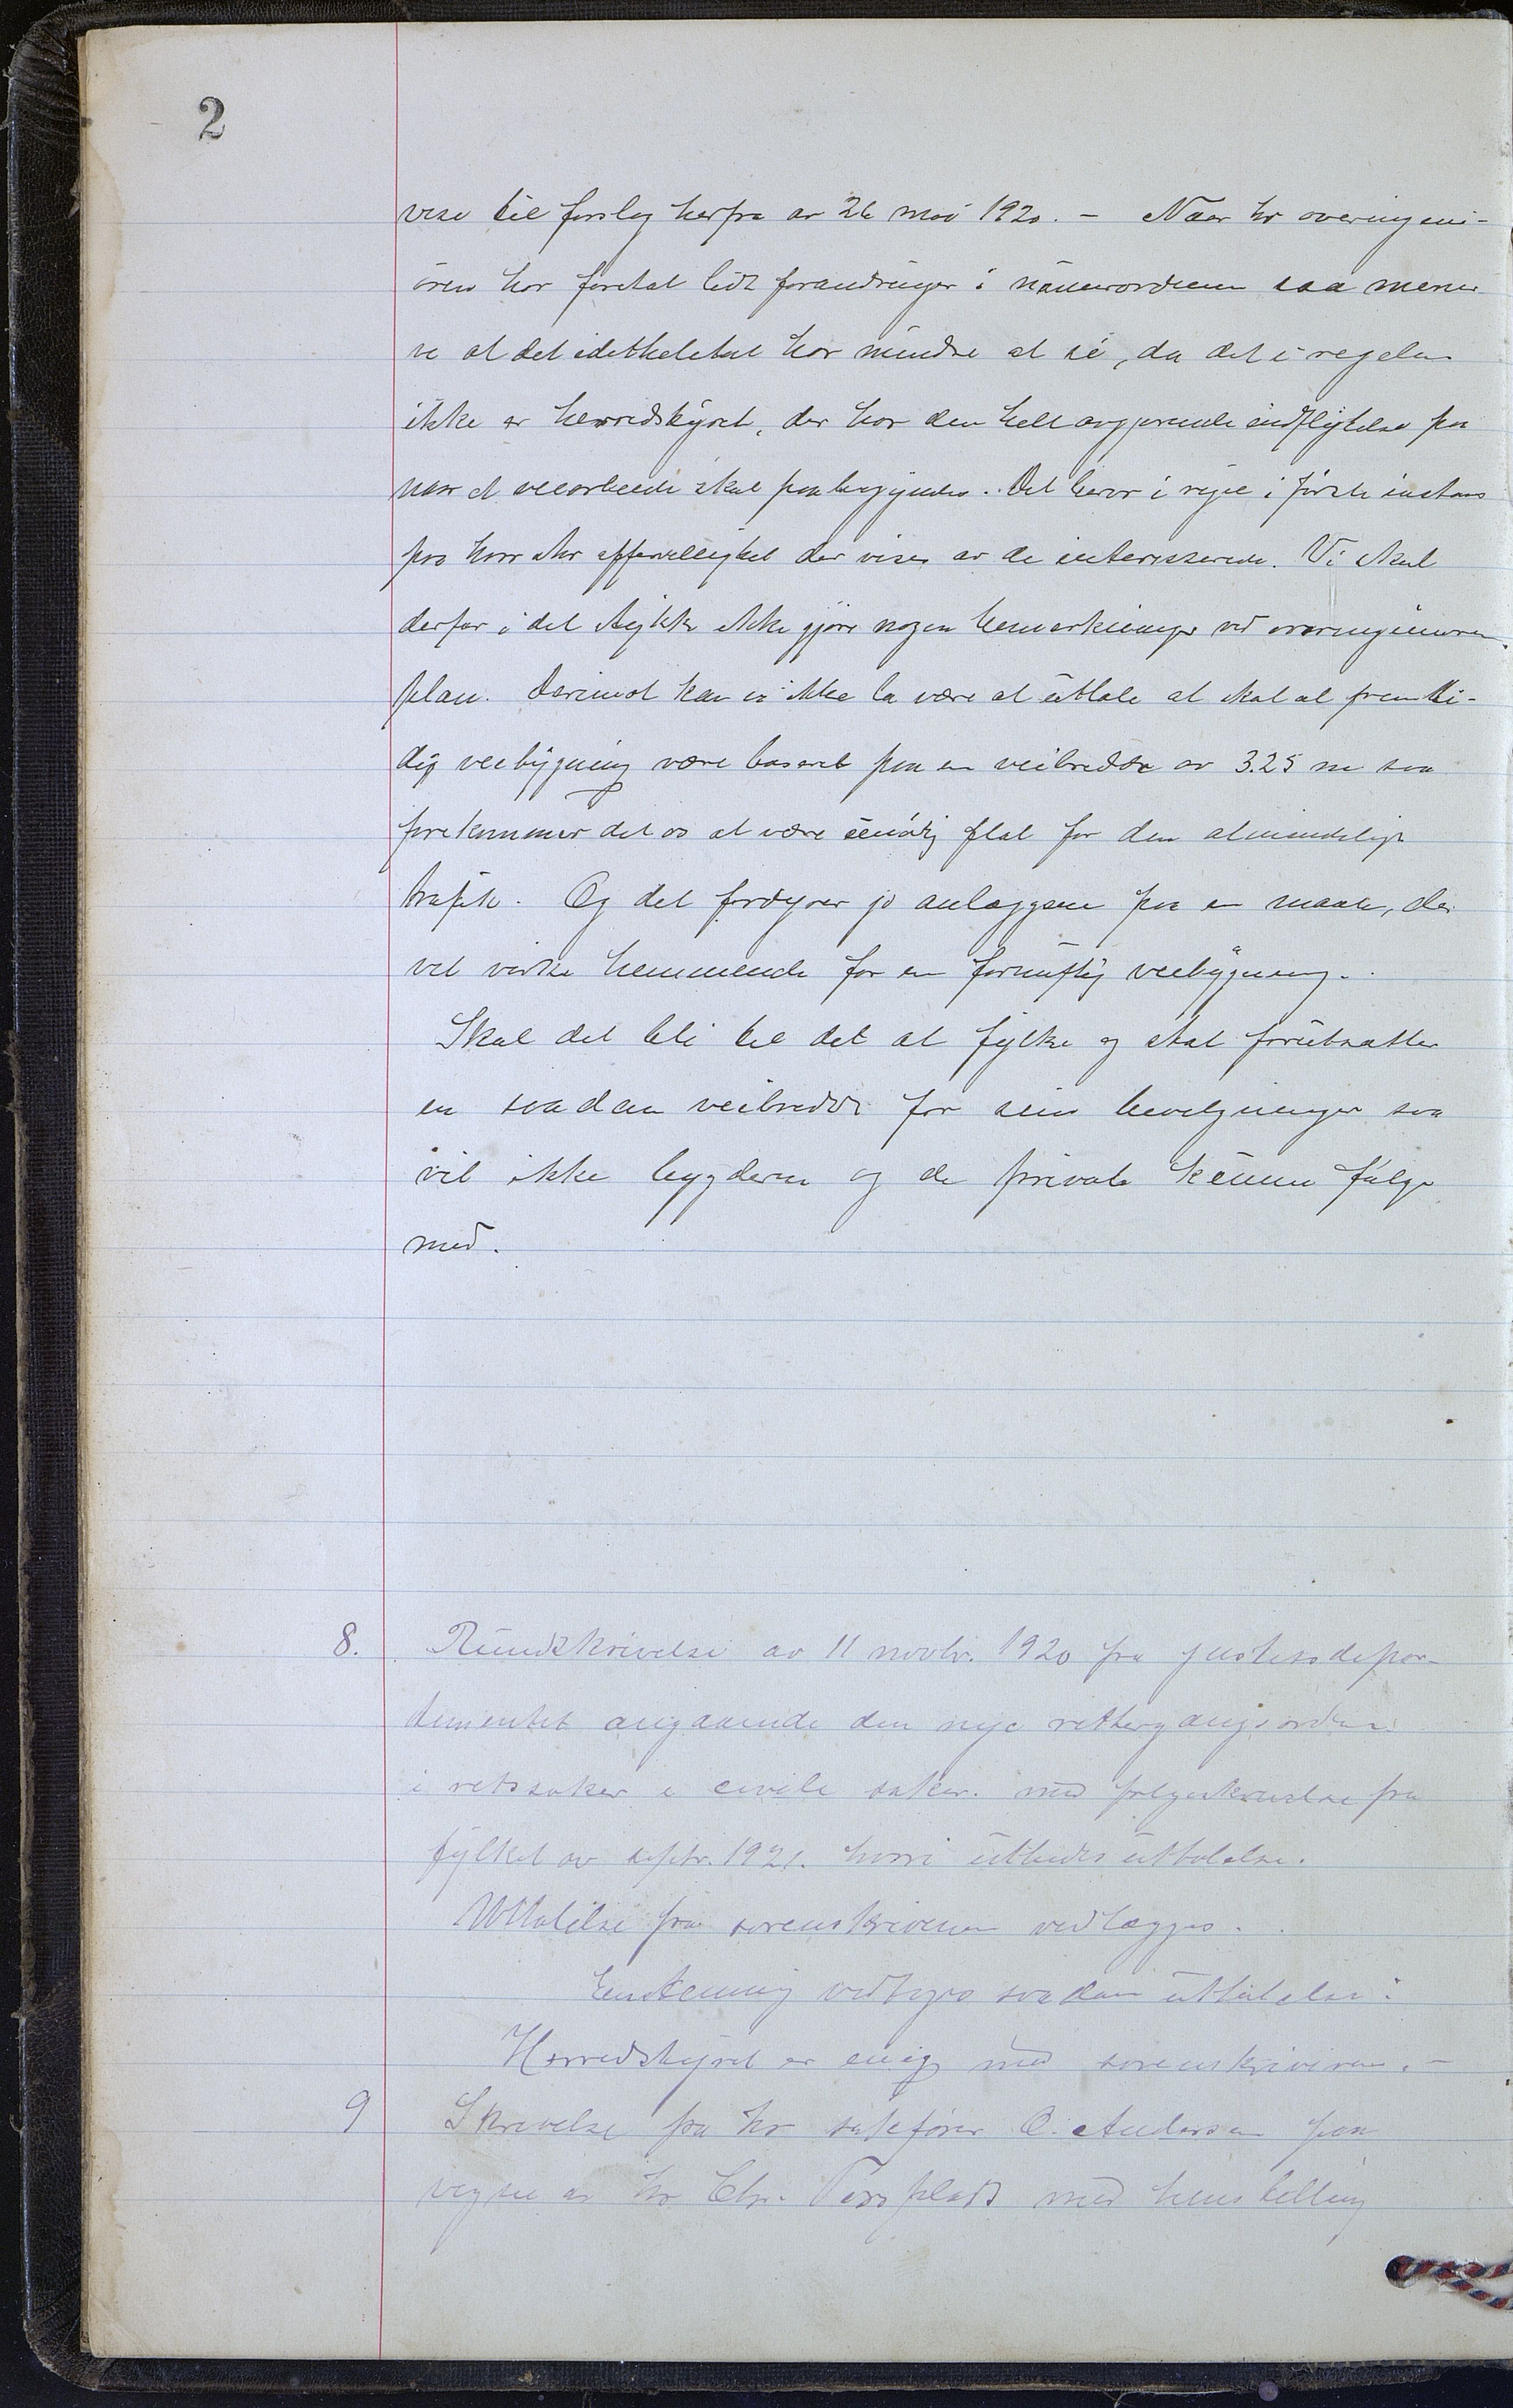 2
vise til forslag herfra av 26 mai 1920. – Naar hr overingeni-
øren har foretat lidt forandringer i nummerordenen saa mener
vi at det idetheletat har mindre at si, da det i regelen
ikke er herredstyret, der har den helt avgjørende indflytelse paa
naar et veiarbeide skal paabegyndes. Det beror i regel i første instans
paa hvor stor offervillighet der vises av de interesserede. Vi skal
derfor i det stykke ikke gjøre nogen bemerkninger ved overingeniørens
plan. Derimot kan vi ikke la være at uttale at skal al fremti-
dig veibygning være baseret paa en veibredde av 3.25 m saa
forekommer det os at være unødig flot for den almindelige
trafik. Og det fordyrer jo anlæggene paa en maate, der
vil virke hemmende for en fornuftig veibygning.
Skal det bli til det at fylke og stat forutsætter
en saadan veibredde for sine bevilgninger saa
vil ikke bygderne og de private kunne følge
med.
8. Rundskrivelse av 11 novbr. 1920 fra justisdepar-
tementet angaaende den nye rettergangsorden
i retssaker i civile saker. med følgeskrivelse fra
fylket av septr. 1921. hvori utbedes uttalelse.
Uttalelse fra sorenskriveren vedlægges.
Enstemmig vedtages saadan uttalelse:
Herredstyret er enig med sorenskriveren. –
9 Skrivelse fra hr sakfører O. Andersen paa
vegne av hr Chr. med henstilling